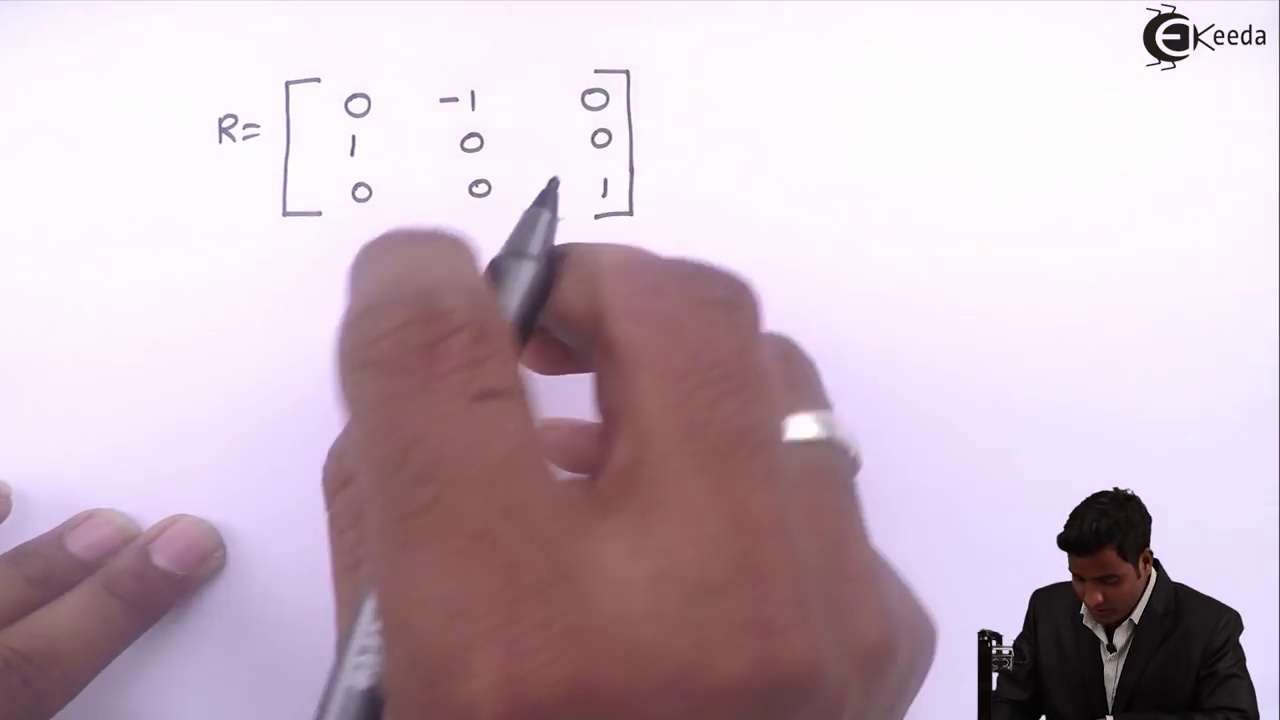 Keeda
R= [ 0 -1 0
1 0 0
0 0 1 ]